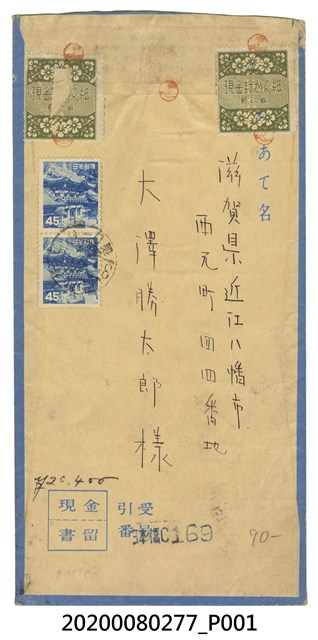 現金封かん紙
現金封かん紙
あて名
滋賀県近江八幡市
西元町四四番地
大澤勝太郎様
日本郵便
45
日本郵便
45
¥20,400
現金
書留
引受
番号
日本橋C169
90-
20200080277_P001